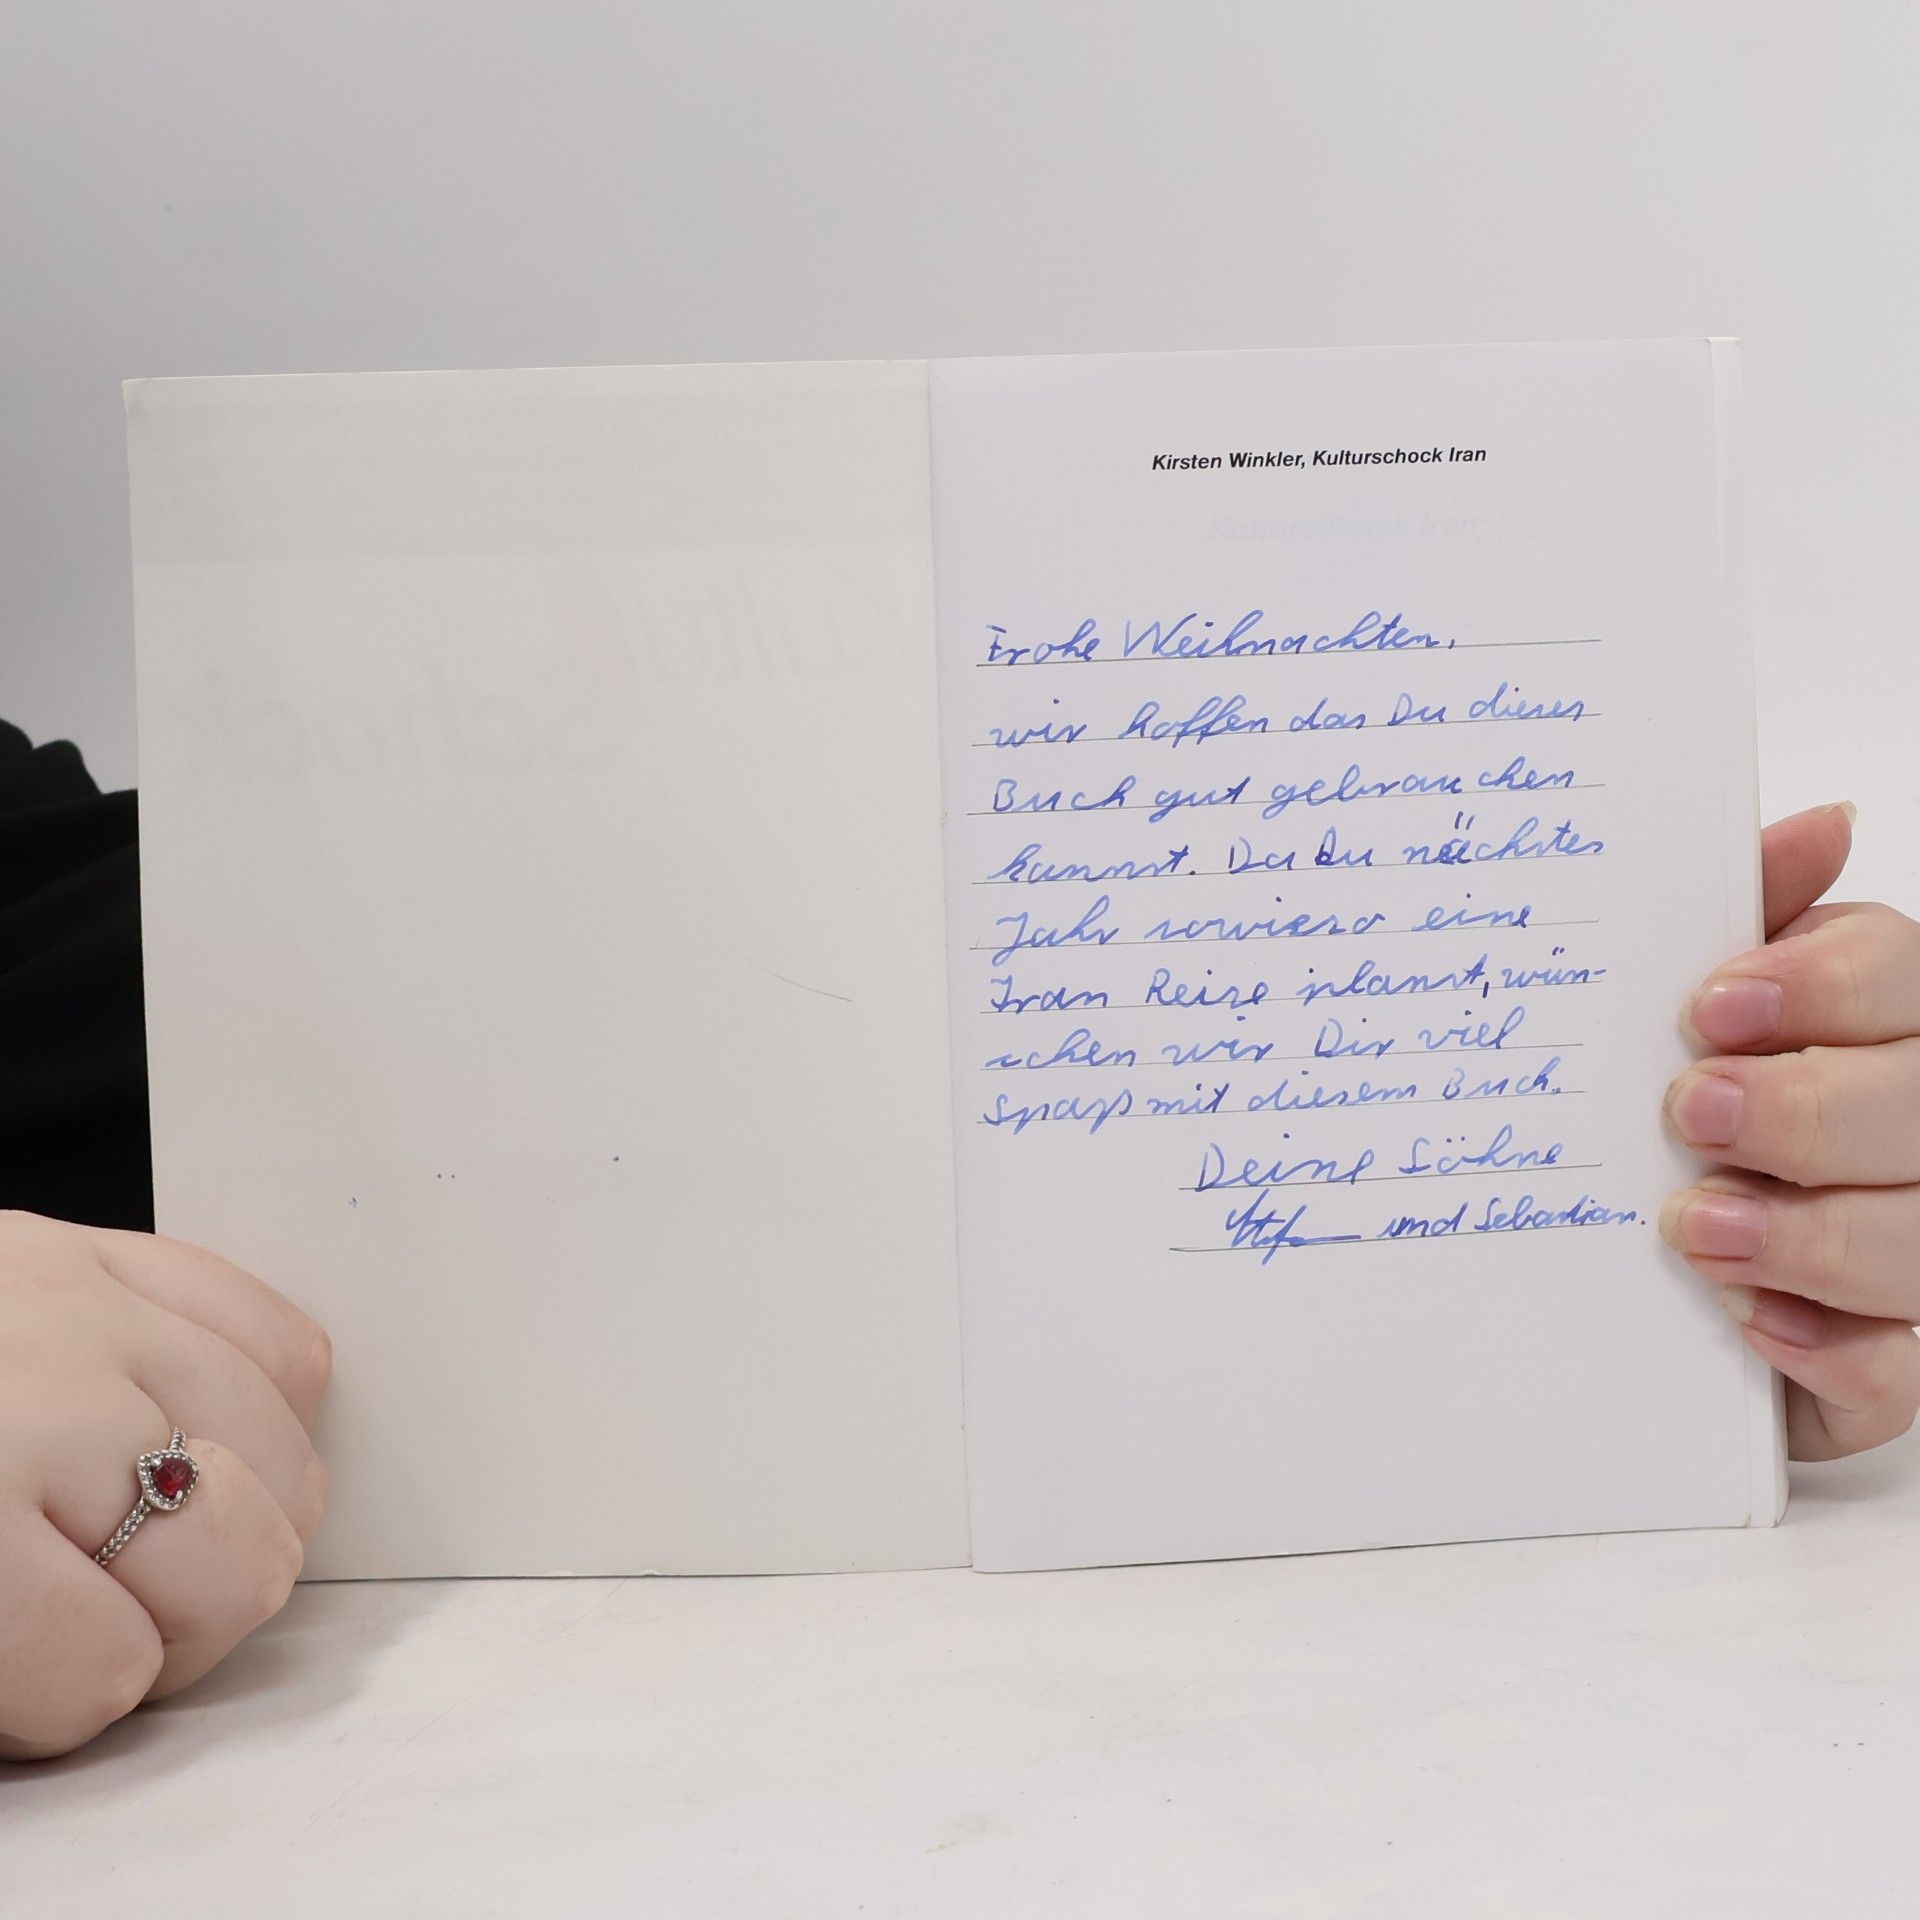 Kirsten Winkler, Kulturschock Iran
Kulturschock Iran
Frohe Weihnachten,
wir hoffen das Du dieses
Buch gut gebrauchen
kannst. Da Du nächstes
Jahr sowieso eine
Iran Reise planst, wün-
schen wir Dir viel
Spaß mit diesem Buch.
Deine Söhne
Stefan und Sebastian.
Kultur
Schock